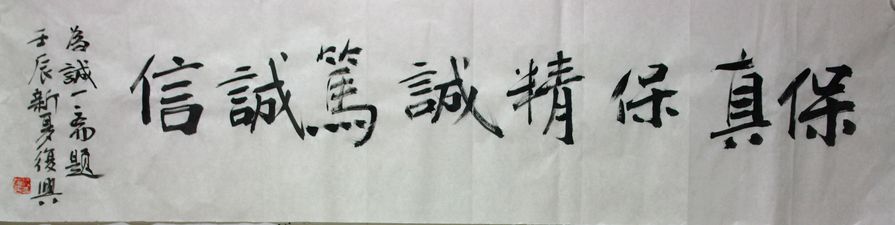 保真保精誠篤誠信
為誠一斋題
壬辰新夏復興